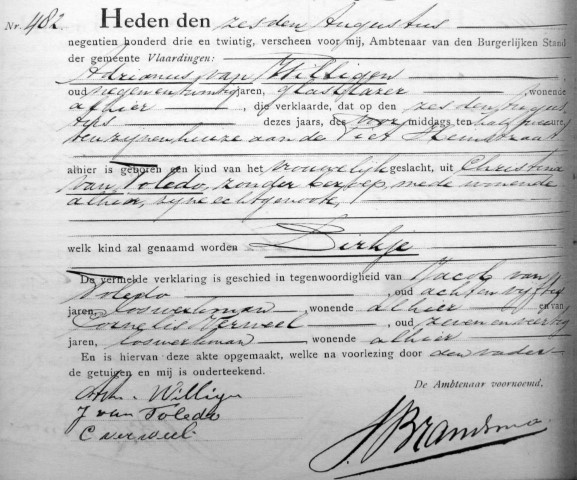 Nr. 482. Heden den zesden Augustus
negentien honderd drie en twintig, verscheen voor mij, Ambtenaar van den Burgerlijken Stand
der gemeente Vlaardingen:
Adrianus van Willigen
oud negenentwintig jaren, glasblazer, wonende
alhier, die verklaarde, dat op den zesden Augus
tus dezes jaars, des voor middags ten half
ten zijnen huize aan de Piet Heinstraat
alhier is geboren een kind van het vrouwelijk geslacht, uit Christina
van Toledo, zonder beroep, mede wonende
alhier, zijne echtgenoote,
welk kind zal genaamd worden Dirkje
De vermelde verklaring is geschied in tegenwoordigheid van Jacob van
Toledo, oud achtenvijftig
jaren, loswerkman, wonende alhier en van
Cornelis Verweel, oud zevenenveertig
jaren, loswerkman, wonende alhier
En is hiervan deze akte opgemaakt, welke na voorlezing door den vader
de getuigen en mij is onderteekend.
De Ambtenaar voornoemd.
J van Toledo
C verweel